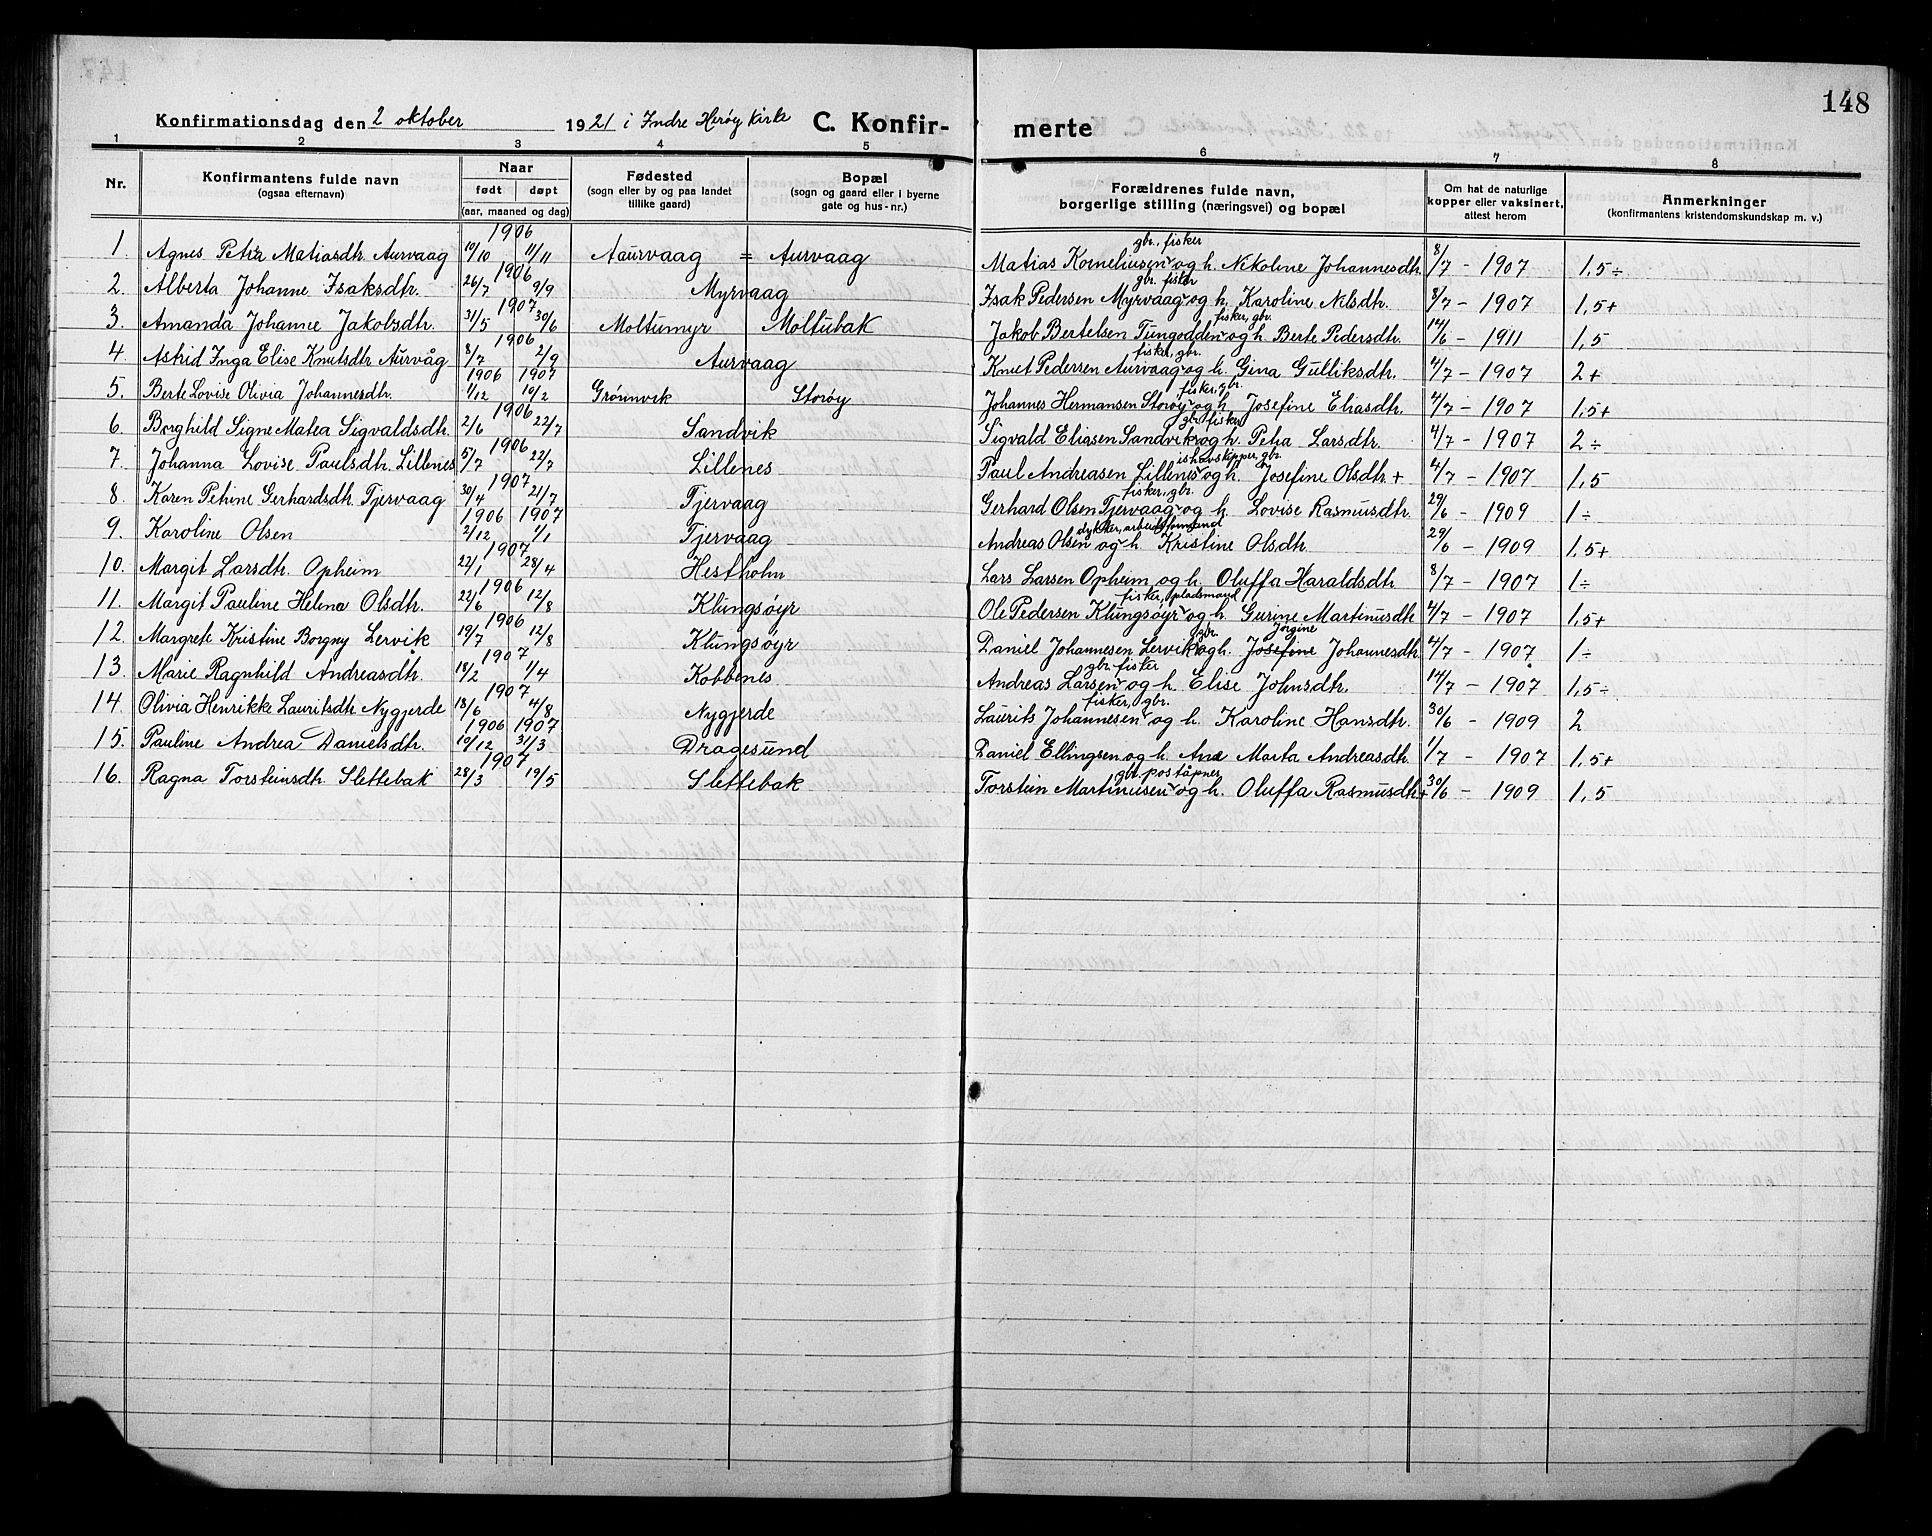 148
Konfirmationsdag den 2 oktober 1921 i Indre Herøy Kirke C. Konfir- merte
1 2 3 4 5 6 7 8
Nr. Konfirmantens fulde navn (ogsaa efternavn) Naar født døpt (aar, maaned og dag) Fødested (sogn eller by og paa landet tillike gaard) Bopæl (sogn og gaard eller i byerne gate og hus-nr.) Forældrenes fulde navn, borgerlige stilling (næringsvei) og bopæl Om hat de naturlige kopper eller vaksinert, attest herom Anmerkninger (konfirmantens kristendomskundskap m. v.)
1906 gbr., fisker
1. Agnes Petra Matiasdtr. Aurvaag 10/10 11/11 Aaurvaag = Aurvaag Matias Korneliusen og h. Nikoline Johannesdtr. 8/7 - 1907 1,5 ÷
1906 gbr. fisker
2. Alberta Johanne Isaksdtr. 26/7 9/9 Myrvaag Isak Pedersen Myrvaag og h. Karoline Nilsdtr. 8/7 - 1907 1,5+
1907 fisker, gbr.
3. Amanda Johanne Jakobsdtr. 31/5 30/6 Moltumyr Moltubak Jakob Bertelsen Tungodden og h. Berte Pedersdtr. 14/6 - 1911 1,5
1906 fisker, gbr.
4. Astrid Inga Elise Knutsdtr Aurvåg 8/7 2/9 Aurvaag Knut Pedersen Aurvaag og h. Gina Gulliksdtr. 4/7 - 1907 2+
1906 1907 fisker, gbr.
5. Berte Lovise Olivia Johannesdtr. 1/12 10/2 Grønnvik Storøy Johannes Hermansen Storøy og h. Josefine Eliasdtr. 4/7 - 1907 1,5+
1906 gbr. fisker
6. Borghild Signe Matea Sigvaldsdtr. 2/6 22/7 Sandvik Sigvald Eliasen Sandvik og h. Petra Larsdtr. 4/7 - 1907 2÷
1906 ishavsskipper, gbr.
7. Johanna Lovise Paulsdtr. Lillenes 5/7 22/7 Lillenes Paul Andreasen Lillenes og h. Josefine Olsdtr. + 4/7 - 1907 1,5
1907 fisker, gbr.
8. Karen Petrine Gerhardsdtr. Tjervaag 30/4 21/7 Tjervaag Gerhard Olsen Tjervaag og h. Lovise Rasmusdtr. 29/6 - 1909 1÷
1906 1907 dykker, arbeidsformand
9. Karoline Olsen 2/12 1/1 Tjervaag Andreas Olsen og h. Kristine Olsdtr. 29/6 - 1909 1,5+
1907
10. Margit Larsdtr. Opheim 22/1 28/4 Hestholm Lars Larsen Opheim og h. Oluffa Haraldsdtr. 8/7 - 1907 1÷
1906 fisker, pladsmand
11. Margit Pauline Helena Olsdtr. 22/6 12/8 Klungsøyr Ole Pedersen Klungsøyr og h. Gurine Martinusdtr 4/7 - 1907 1,5+
1906 gbr. Jørgine
12. Margrete Kristine Borgny Lervik 19/7 12/8 Klungsøyr Daniel Johannesen Lervik og h. Josefine Johannesdtr. 4/7 - 1907 1÷
1907 gbr. fisker
13. Marie Ragnhild Andreasdtr. 18/2 1/4 Kobbenes Andreas Larsen og h. Elise Johnsdtr. 14/7 - 1907 1,5÷
1907 fisker, gbr.
14. Olivia Henrikke Lauritsdtr Nygjerde 18/6 4/8 Nygjerde Laurits Johannesen og h. Karoline Hansdtr. 30/6 - 1909 2
1906 1907
15. Pauline Andrea Danielsdtr. 10/12 31/3 Dragesund Daniel Ellingsen og h. Ane Marta Andreasdtr. 1/7 - 1907 1,5+
1907 gbr. poståpner
16. Ragna Torsteinsdtr. Slettebak 28/3 19/5 Slettebak Torstein Martinusen og h. Oluffa Rasmusdtr. + 30/6 - 1909 1,5